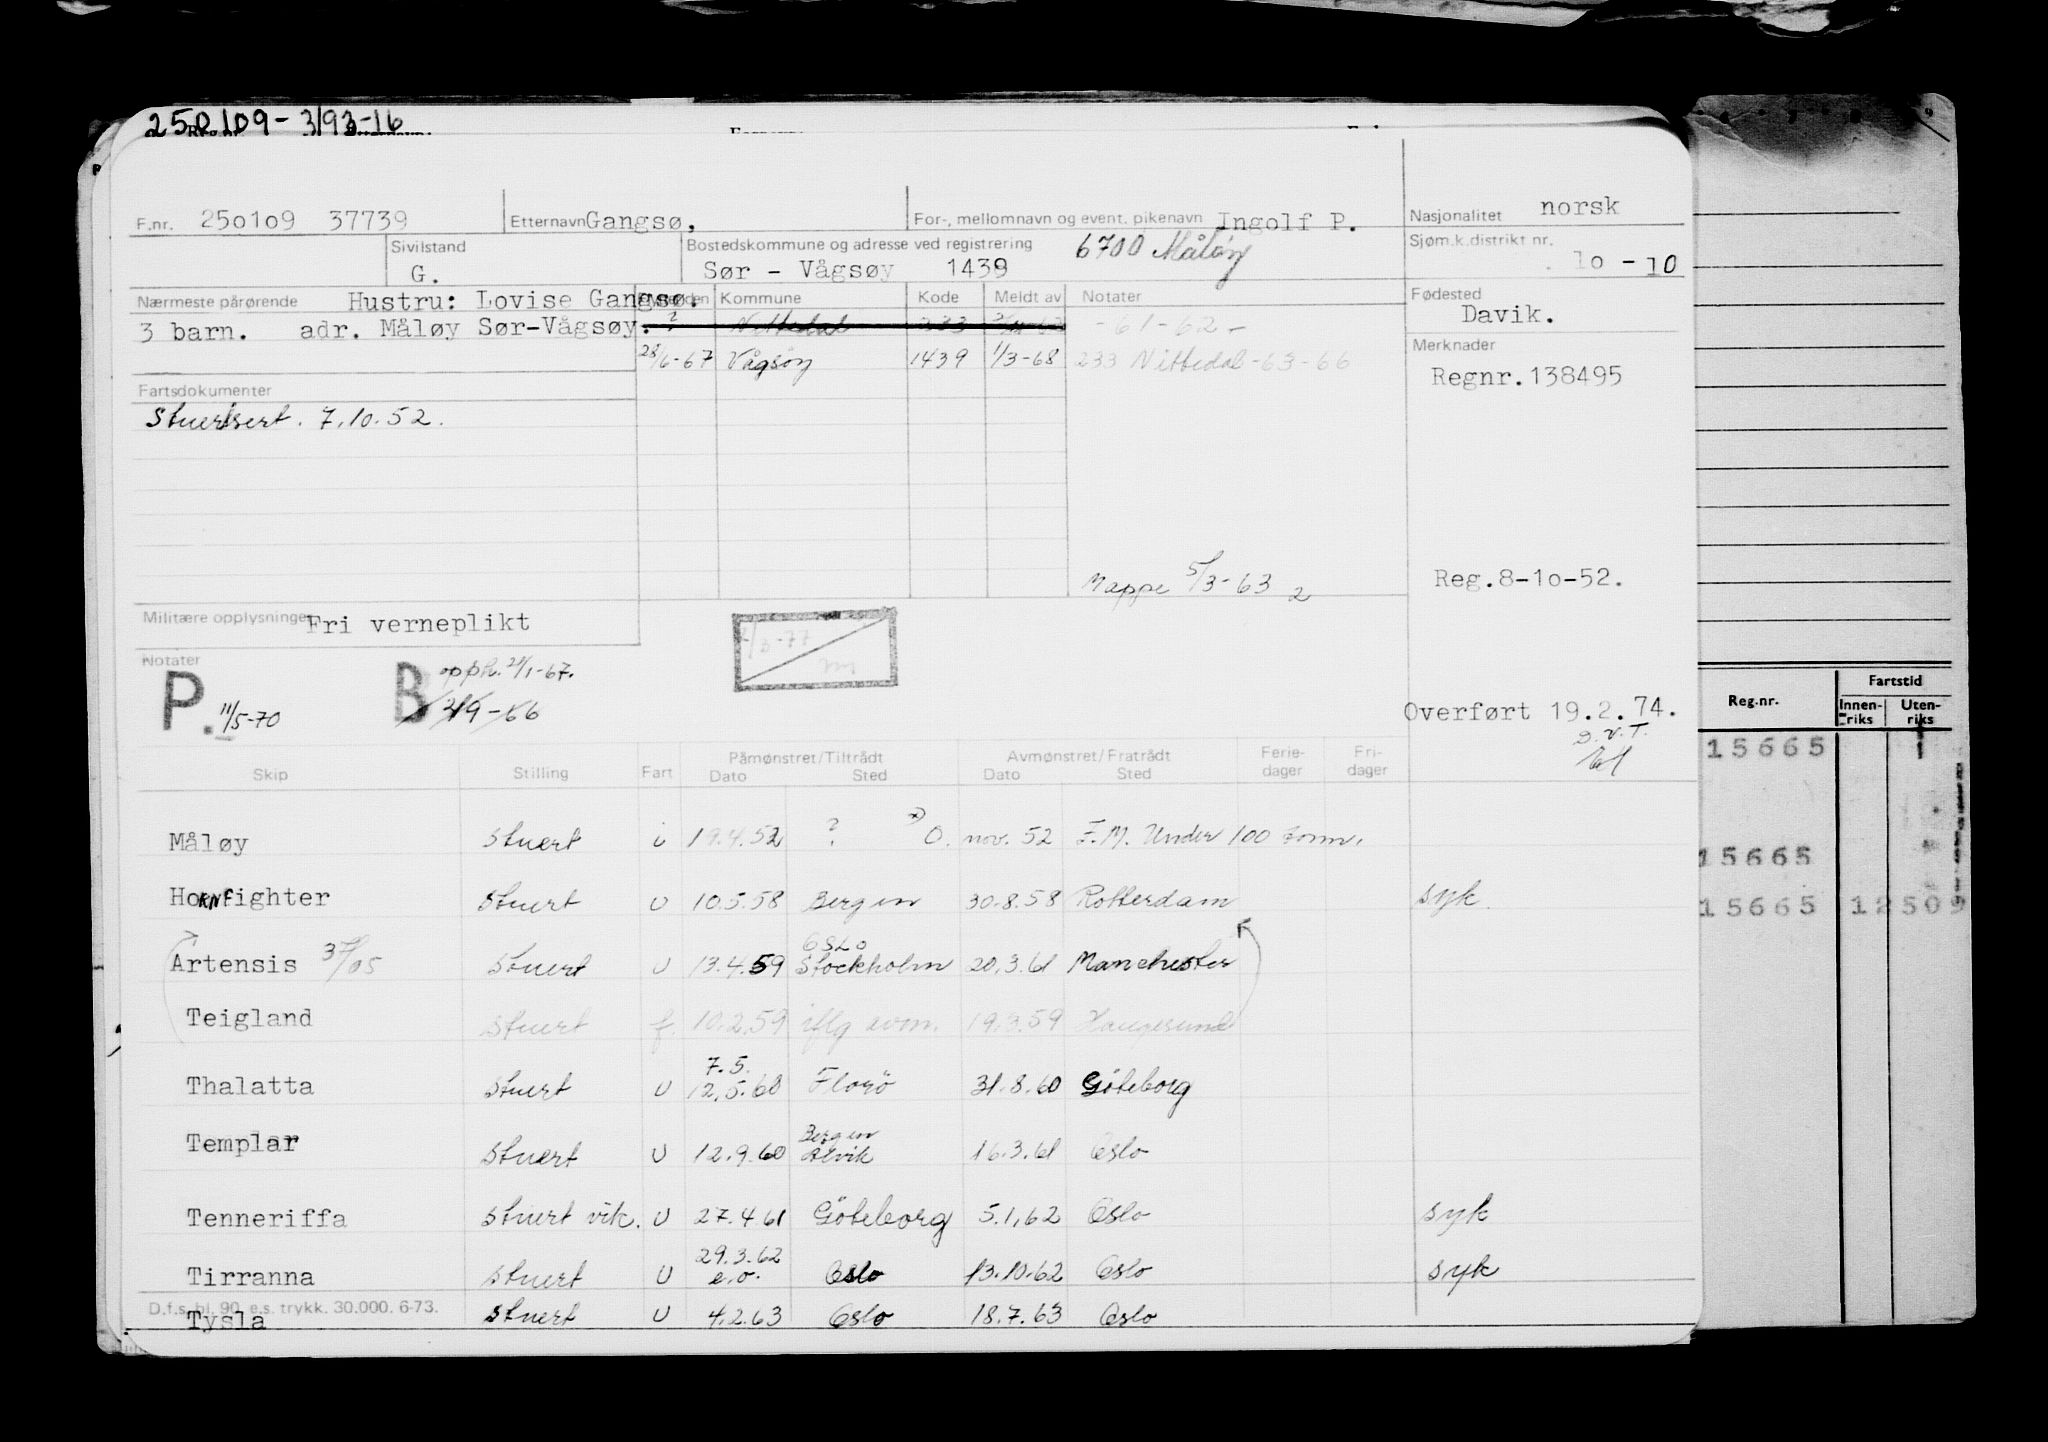 250109-3193-16
F.nr. 250109 37739 Etternavn Gangsø, For-, mellomnavn og event. pikenavn Ingolf P. Nasjonalitet norsk
Sivilstand G. Bostedskommune og adresse ved registrering Sør - Vågsøy 1439 6700 Måløy Sjøm.k.distrikt nr. 10 - 10
Nærmeste pårørende Hustru: Lovise Gangsø. Kommune Kode Meldt av Notater Fødested
3 barn. adr. Måløy Sør-Vågsøy. ? Nittedal 233 -61-62- Davik.
28/6-67 Vågsøy 1439 1/3-68 233 Nittedal -63-66 Merknader
Regnr.138495
Fartsdokumenter
Stuertsert. 7.10.52.
Mappe 5/3-63 2 Reg.8-10-52.
Militære opplysninger Fri verneplikt
Notater
P. 11/5-70 B opph. 21/1-67.
2/9-66
/3-77
Overført 19.2.74.
D.v.T.
Reg.nr. Fartstid
Innen-riks Uten-riks
15665 1
15665
15665 12509
Skip Stilling Fart Påmønstret/Tiltrådt Dato Sted Avmønstret/Fratrådt Dato Sted Ferie-dager Fri-dager
Måløy Stuert i 19.4.52 ? x) O. nov. 52 F.M. Under 100 tonn.
Hoknfighter Stuert U 10.5.58 Bergen 30.8.58 Rotterdam syk.
Artensis 37/05 Stuert U 13.4.59 Oslo Stockholm 20.3.61 Manchester
Teigland Stuert f. 10.2.59 iflg avm. 19.3.59 Haugesund
Thalatta Stuert U 7.5. 12.5.60 Florö 31.8.60 Göteborg
Templar Stuert U 12.9.60 Bergen Ålvik 16.3.61 Oslo
Tenneriffa Stuert vik. U 27.4.61 Göteborg 5.1.62 Oslo syk
Tirranna Stuert U 29.3.62 e.o. Oslo 13.10.62 Oslo syk
D.f.s. bl. 90. e.s. trykk. 30.000. 6-73.
Tysla Stuert U 4.2.63 Oslo 18.7.63 Oslo